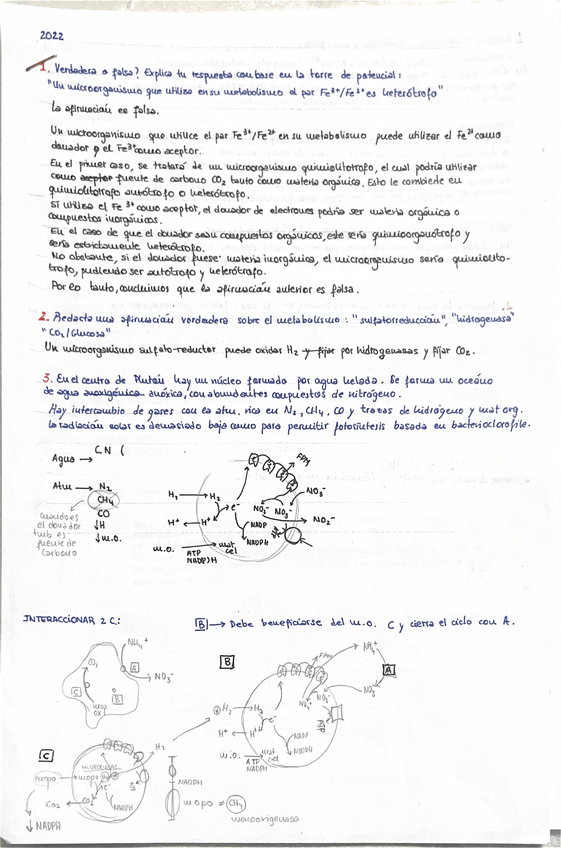 2022
1. Verdadera o falsa? Explica tu respuesta con base en la torre de potencial:
"Un microorganismo que utiliza en su metabolismo el par Fe³⁺/Fe²⁺ es heterótrofo"
La afirmación es falsa.
Un microorganismo que utilice el par Fe³⁺/Fe²⁺ en su metabolismo puede utilizar el Fe²⁺ como
donador o el Fe³⁺ como aceptor.
En el primer caso, se tratará de un microorganismo quimiolitotrofo, el cual podría utilizar
como aceptor fuente de carbono CO₂ tanto como materia orgánica. Esto le combierte en
quimiolitotrofo autótrofo o heterótrofo.
Si utiliza el Fe³⁺ como aceptor, el donador de electrones podría ser materia orgánica o
compuestos inorgánicos.
En el caso de que el donador sean compuestos orgánicos, este sería quimioorganótrofo y
sería estrictamente heterótrofo.
No obstante, si el donador fuese materia inorgánica, el microorganismo sería quimiolito-
trofo, pudiendo ser autótrofo y heterótrofo.
Por lo tanto, concluimos que la afirmación anterior es falsa.
2. Redacta una afirmación verdadera sobre el metabolismo: "sulfatorreducción", "hidrogenasa"
"CO₂/Glucosa"
Un microorganismo sulfato-reductor puede oxidar H₂ y fijar por hidrogenasas y fijar CO₂.
3. En el centro de Plutón hay un núcleo formado por agua helada. Se forma un océano
de agua anoxigénica anóxica, con abundantes compuestos de nitrógeno.
Hay intercambio de gases con la atm. rica en N₂, CH₄, CO y trazas de hidrógeno y mat org.
La radiación solar es demasiado baja como para permitir fotosíntesis basada en bacterioclorofila.
Agua → C, N (
Atm → N₂
CH₄
CO
↓H
↓m.o.
Cuando es
el donador
tmb es
fuente de
carbono
FPM
NO₃⁻
H₂ → H₂
e⁻
NO₂⁻ NO₃⁻
NO₂⁻
H⁺ ← H⁺
NADP
NADPH
m.o. → mat cel
ATP
NADPH
INTERACCIONAR 2 C.:
B → Debe beneficiarse del m.o. C y cierra el ciclo con A.
NH₄⁺
CO₂
A
NO₃⁻
C
B
B
FPM
NH₄⁺
A
NO₃⁻
H₂ → H₂
e⁻
H⁺ ← H⁺
ATP
NADP
NADPH
m.o. → mat cel
ATP
NADPH
C
H₂
CO₂ ← CO₂
e⁻
NADPH
↓ NADPH
NADPH
mopo ≠ CH₄
monooxigenasa